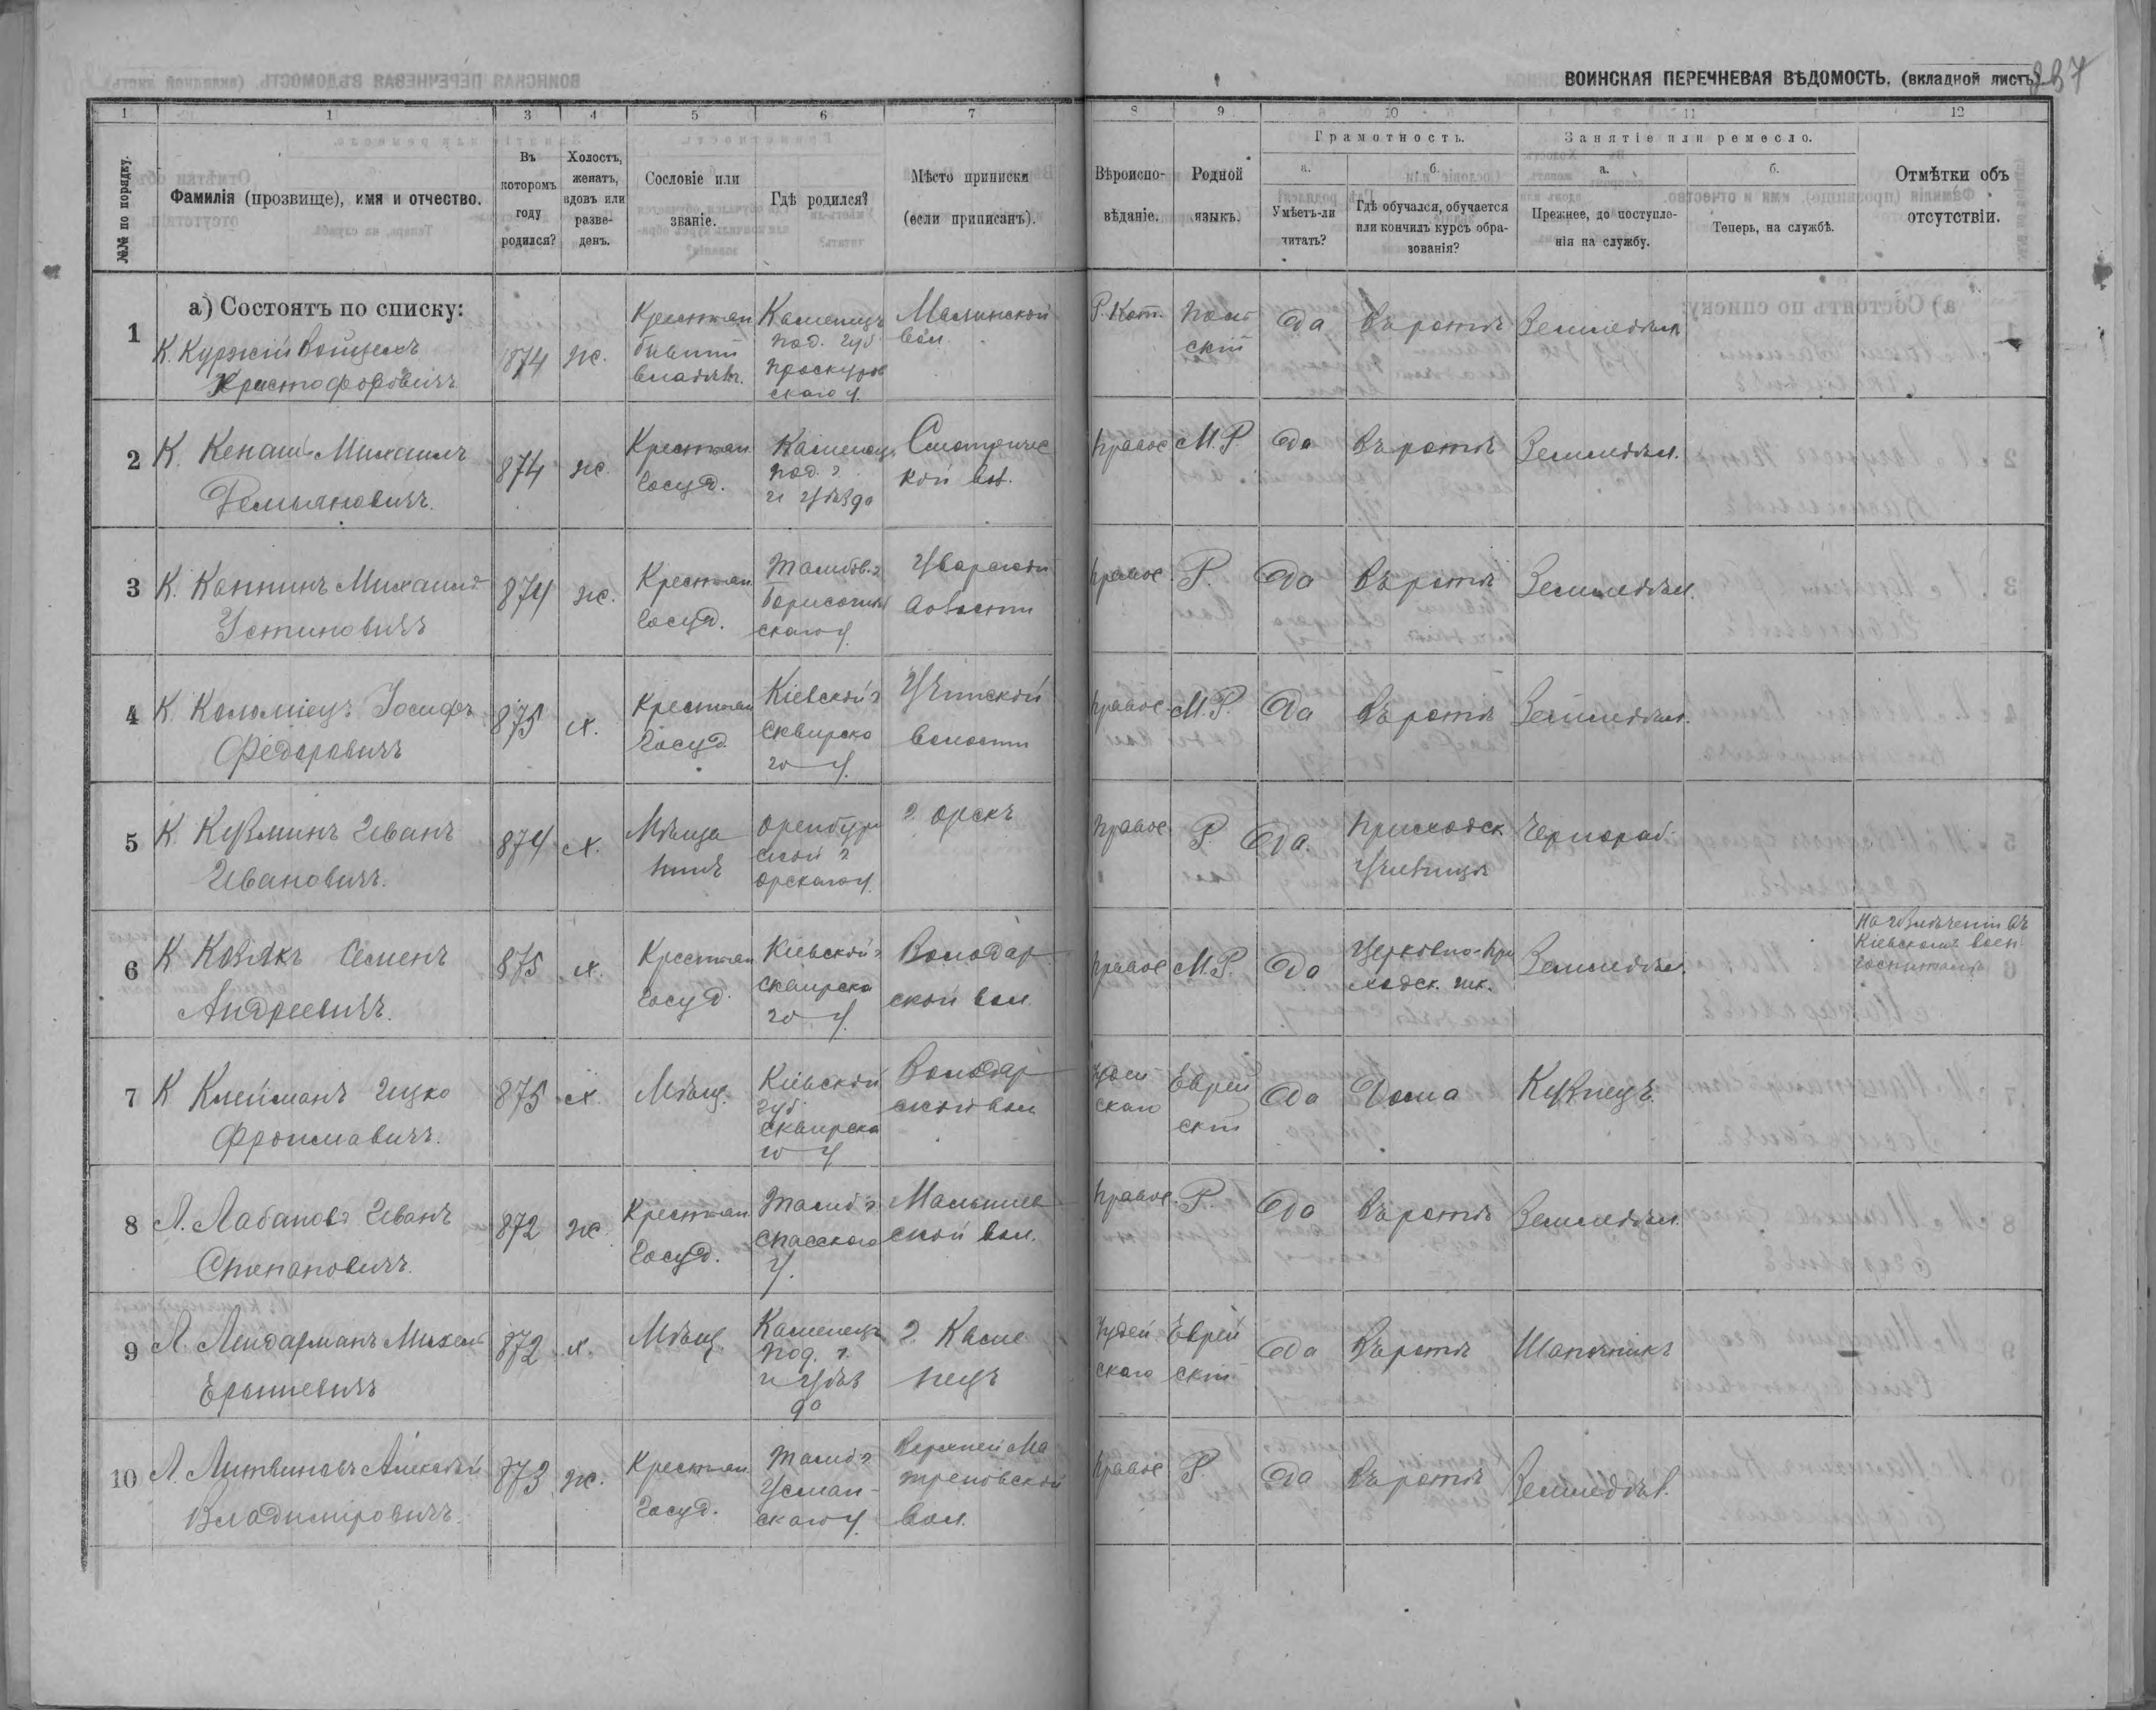 ВОИНСКАЯ ПЕРЕЧНЕВАЯ ВѢДОМОСТЬ. (вкладной листъ)
1 1 3 4 5 6 7 8 9 10 11 12
№№ по порядку.
Фамилія (прозвище), имя и отчество.
Въ которомъ году родился?
Холостъ, женатъ, вдовъ или разве-денъ.
Сословіе или званіе.
Гдѣ родился?
Мѣсто приписки (если приписанъ).
Вѣроиспо-вѣданіе.
Родной языкъ.
Грамотность.
а. Умѣетъ-ли читать?
б. Гдѣ обучался, обучается или кончилъ курсъ обра-зованія?
Занятіе или ремесло.
а. Прежнее, до поступле-нія на службу.
б. Теперь, на службѣ.
Отмѣтки объ отсутствіи.
а) Состоятъ по списку:
1 К. Войцехъ 874 ж. Крестьян бывш владѣл. Каменецъ Под. губ Проскуров скаго у. вол. Р. Кат. Поль скій Да Въ ротѣ Земледѣл.
2 К. Михаилъ Демьяновичъ 874 ж. Крестьян Госуд. Каменец Под. г. и уѣзда Смотричес кой вол. Правос М.Р. Да Въ ротѣ Земледѣл.
3 К. Михаилъ Устиновичъ 874 ж. Крестьян Госуд. Тамбов. г. Борисоглѣб скаго у. Уваровской волости Правос. Р. Да Въ ротѣ Земледѣл.
4 К. Коломіецъ Іосифъ Федоровичъ 875 х. Крестьян Госуд Кіевской г Сквирска го у. волости Правос М.Р. Да Въ ротѣ Земледѣл.
5 К. Кузминъ Иванъ Ивановичъ. 874 х. Мѣща нинъ Оренбург ской г Орскаго у. г. Орскъ Правос Р. Да. Приходск. Училищѣ Чернораб.
6 К Козякъ Семенъ Андреевичъ. 875 х. Крестьян Госуд. Кіевской г Сквирска го у. Володар ской вол. Правос М.Р. Да Церковно-при ходск. шк. Земледѣл. На излѣченіи въ Кіевскомъ воен госпиталѣ
7 К Клейманъ Ицко Фроимовичъ. 875 х. Мѣщ. Кіевской губ. Сквирска го у Володар ской вол Іудей скаго Еврей скій Да Дома Кузнецъ.
8 Л. Лабановъ Иванъ Степановичъ. 872 ж. Крестьян. Госуд. Тамб г Спасскаго у. ской вол. Правос. Р. Да Въ ротѣ Земледѣл.
9 Л. 872 х. Мѣщ. Каменецъ Под. г. и уѣз да г. Каме нецъ Іудей скаго Еврей скій Да Въ ротѣ Шапочникъ
10 Л. Литвиновъ Алексѣй Владиміровичъ. 873 ж. Крестьян Госуд. Тамб г Усман- скаго у. Верхней Ма треновской вол. Правос Р. Да Въ ротѣ Земледѣл.